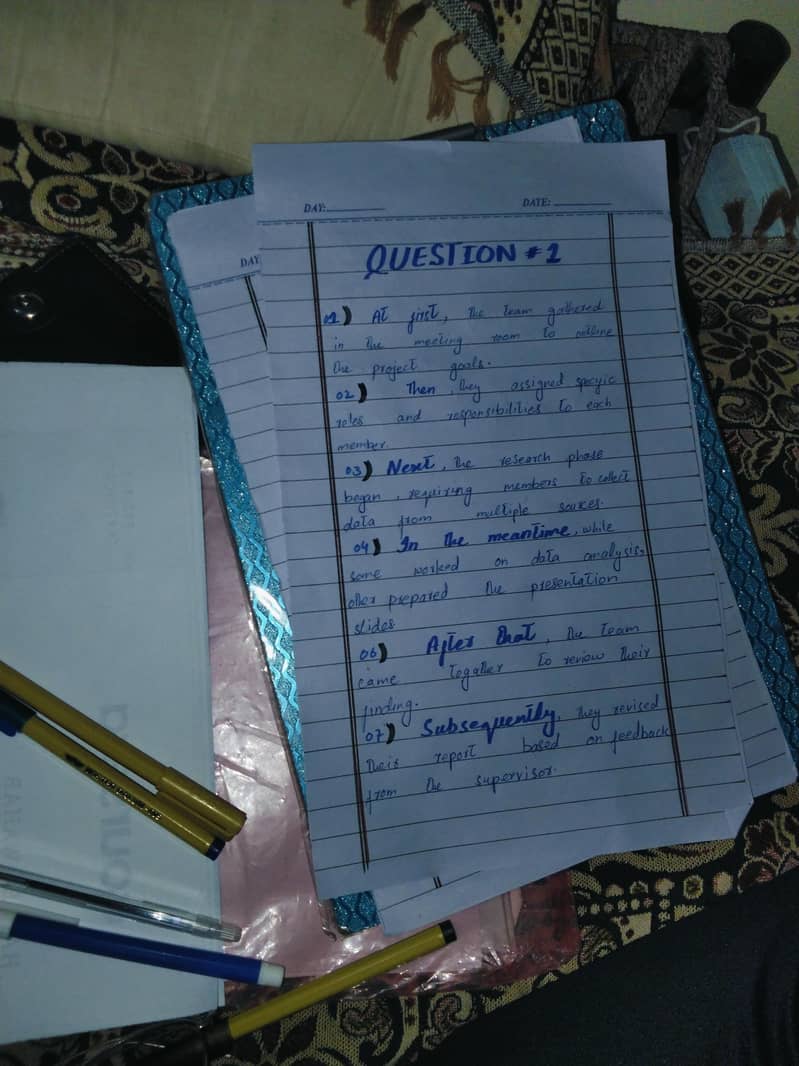 DAY:________ DATE:________
DAY
QUESTION #1
01) At first, the team gathered
in the meeting room to outline
the project goals.
02) Then, they assigned specific
roles and responsibilities to each
member.
03) Next, the research phase
began, requiring members to collect
data from multiple sources.
04) In the meantime, while
some worked on data analysis,
other prepared the presentation
slides
06) After that, the team
came together to review their
finding.
07) Subsequently, they revised
their report based on feedback
from the supervisor.